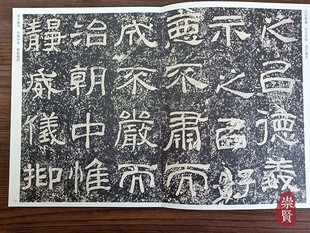 之以德義
示之以好
惡不肅而
成不嚴而
治朝中惟
靜威儀抑
崇賢